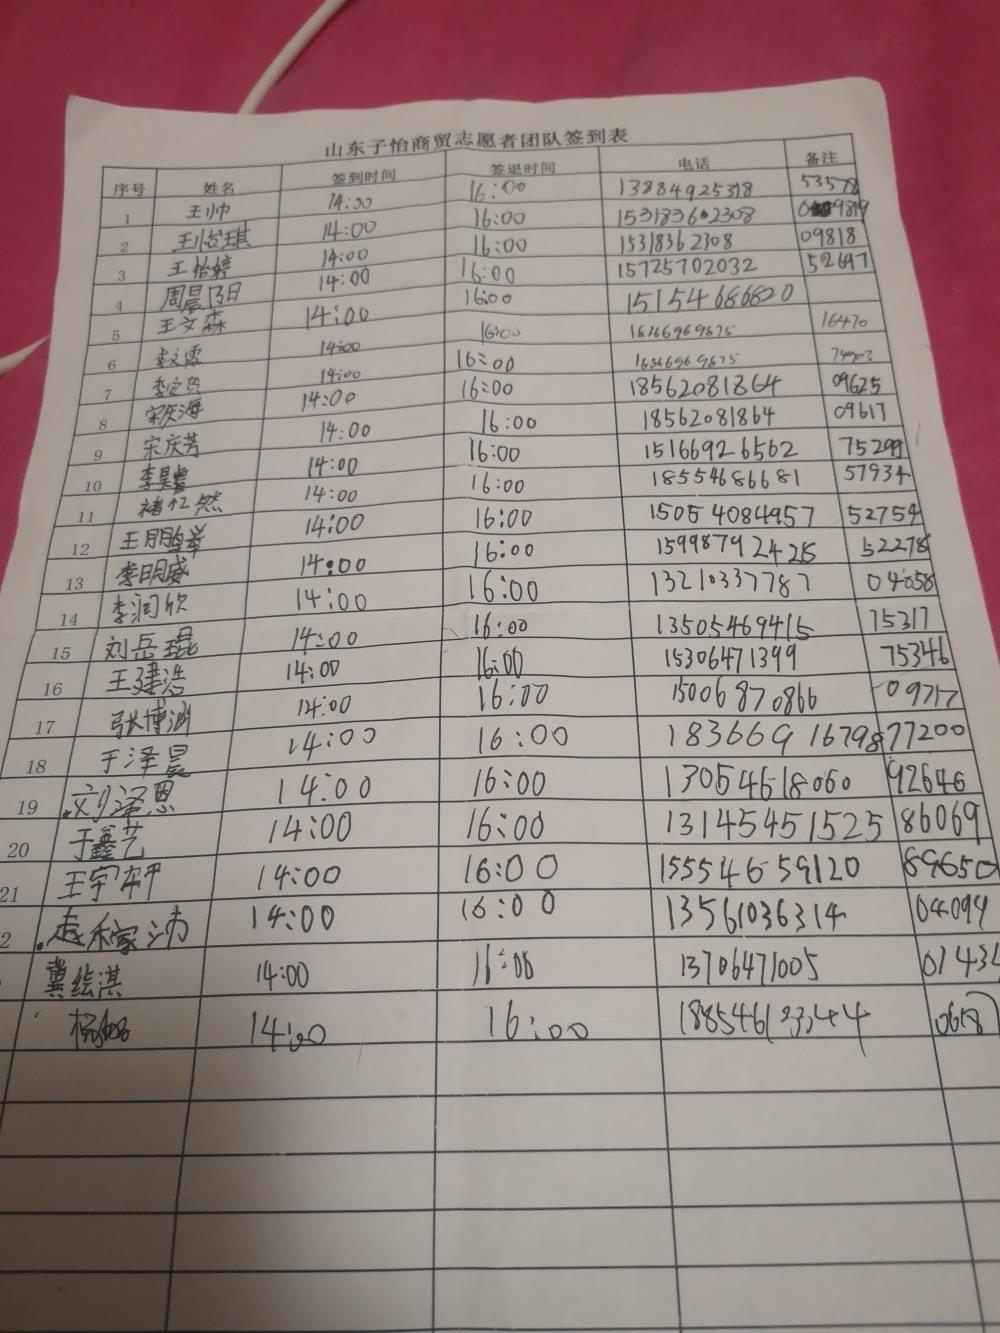 山东子怡商贸志愿者团队签到表
序号 姓名 签到时间 签退时间 电话 备注
1 王帅 14:00 16:00 13884925318 53578
2 14:00 16:00 15318362308 09819
3 王怡婷 14:00 16:00 15318362308 09818
4 14:00 16:00 15725702032 52697
5 王文森 14:00 16:00 15154686820
6 李文儒 14:00 16:00 16470
7 14:00 16:00
8 宋庆海 14:00 16:00 18562081864 09625
9 宋庆芳 14:00 16:00 18562081864 09617
10 14:00 16:00 15166926562 75299
11 褚亿然 14:00 16:00 18554686681 57934
12 14:00 16:00 15054084957 52754
13 李明威 14:00 16:00 15998792428 52278
14 李润欣 14:00 16:00 13210337787 04058
15 刘岳琨 14:00 16:00 13505469415 75317
16 王建浩 14:00 16:00 15306471399 75346
17 张博涵 14:00 16:00 15006870866 09717
18 于泽晨 14:00 16:00 18366916798 77200
19 刘泽恩 14:00 16:00 13054618060 92646
20 于鑫艺 14:00 16:00 13145451525 86069
21 14:00 16:00 15554659120 89650
2 14:00 16:00 13561036314 04094
冀绘淇 14:00 16:00 13706471005
14:00 16:00 18854612344